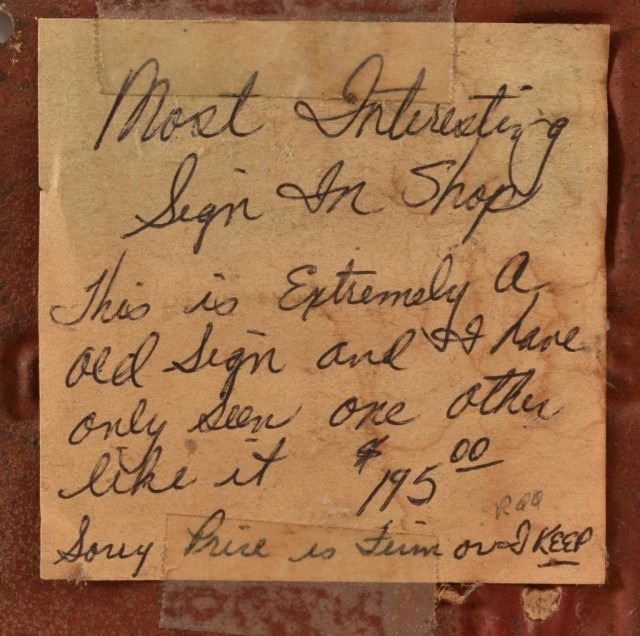 Most Interesting
Sign In Shop
This is Extremely A
old Sign and I have
only seen one other
like it $195.00
Sorry Price is Firm or I KEEP